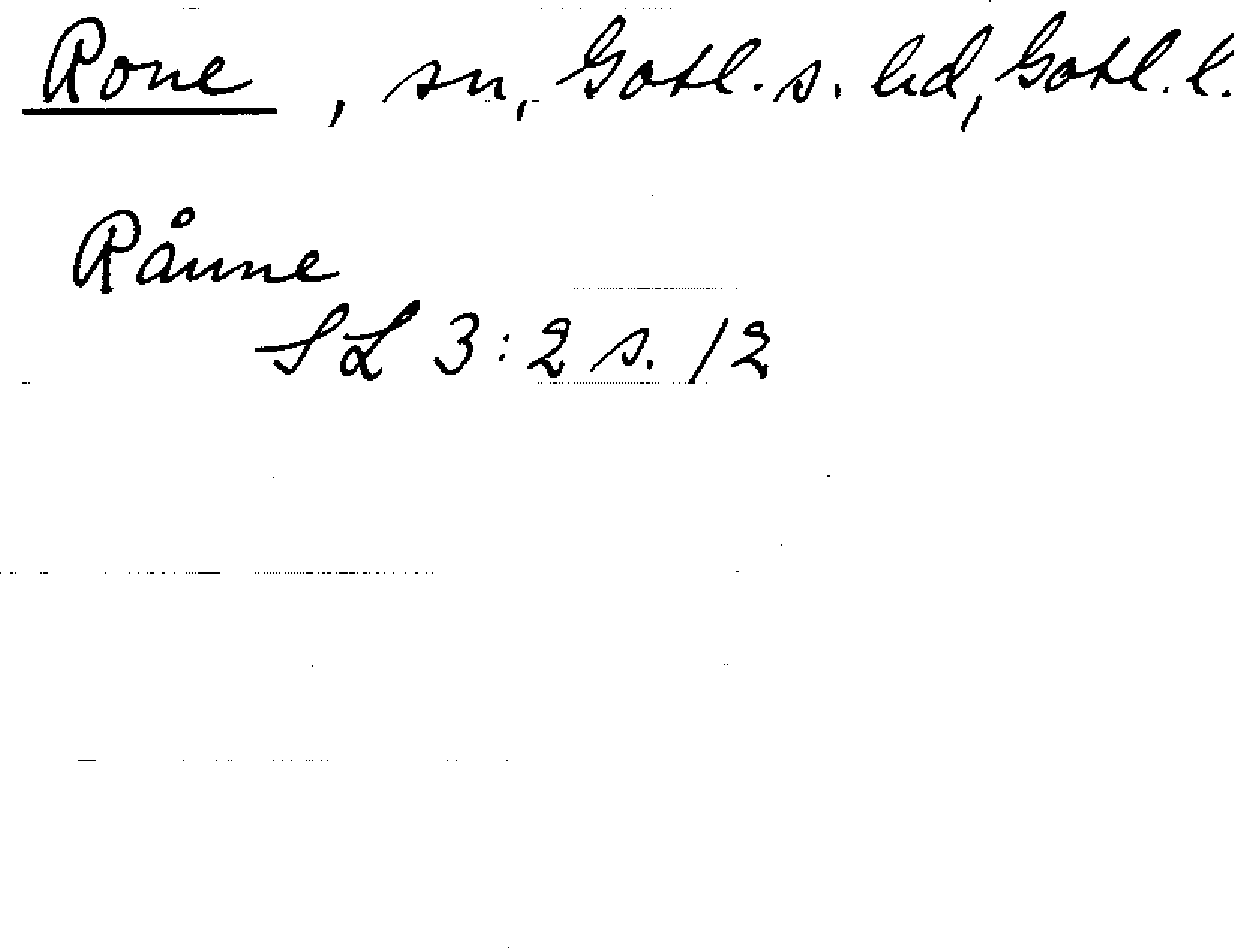 Rone, sn, Gotl. s. hd, Gotl. l.
Rånne
SL 3:2 s. 12